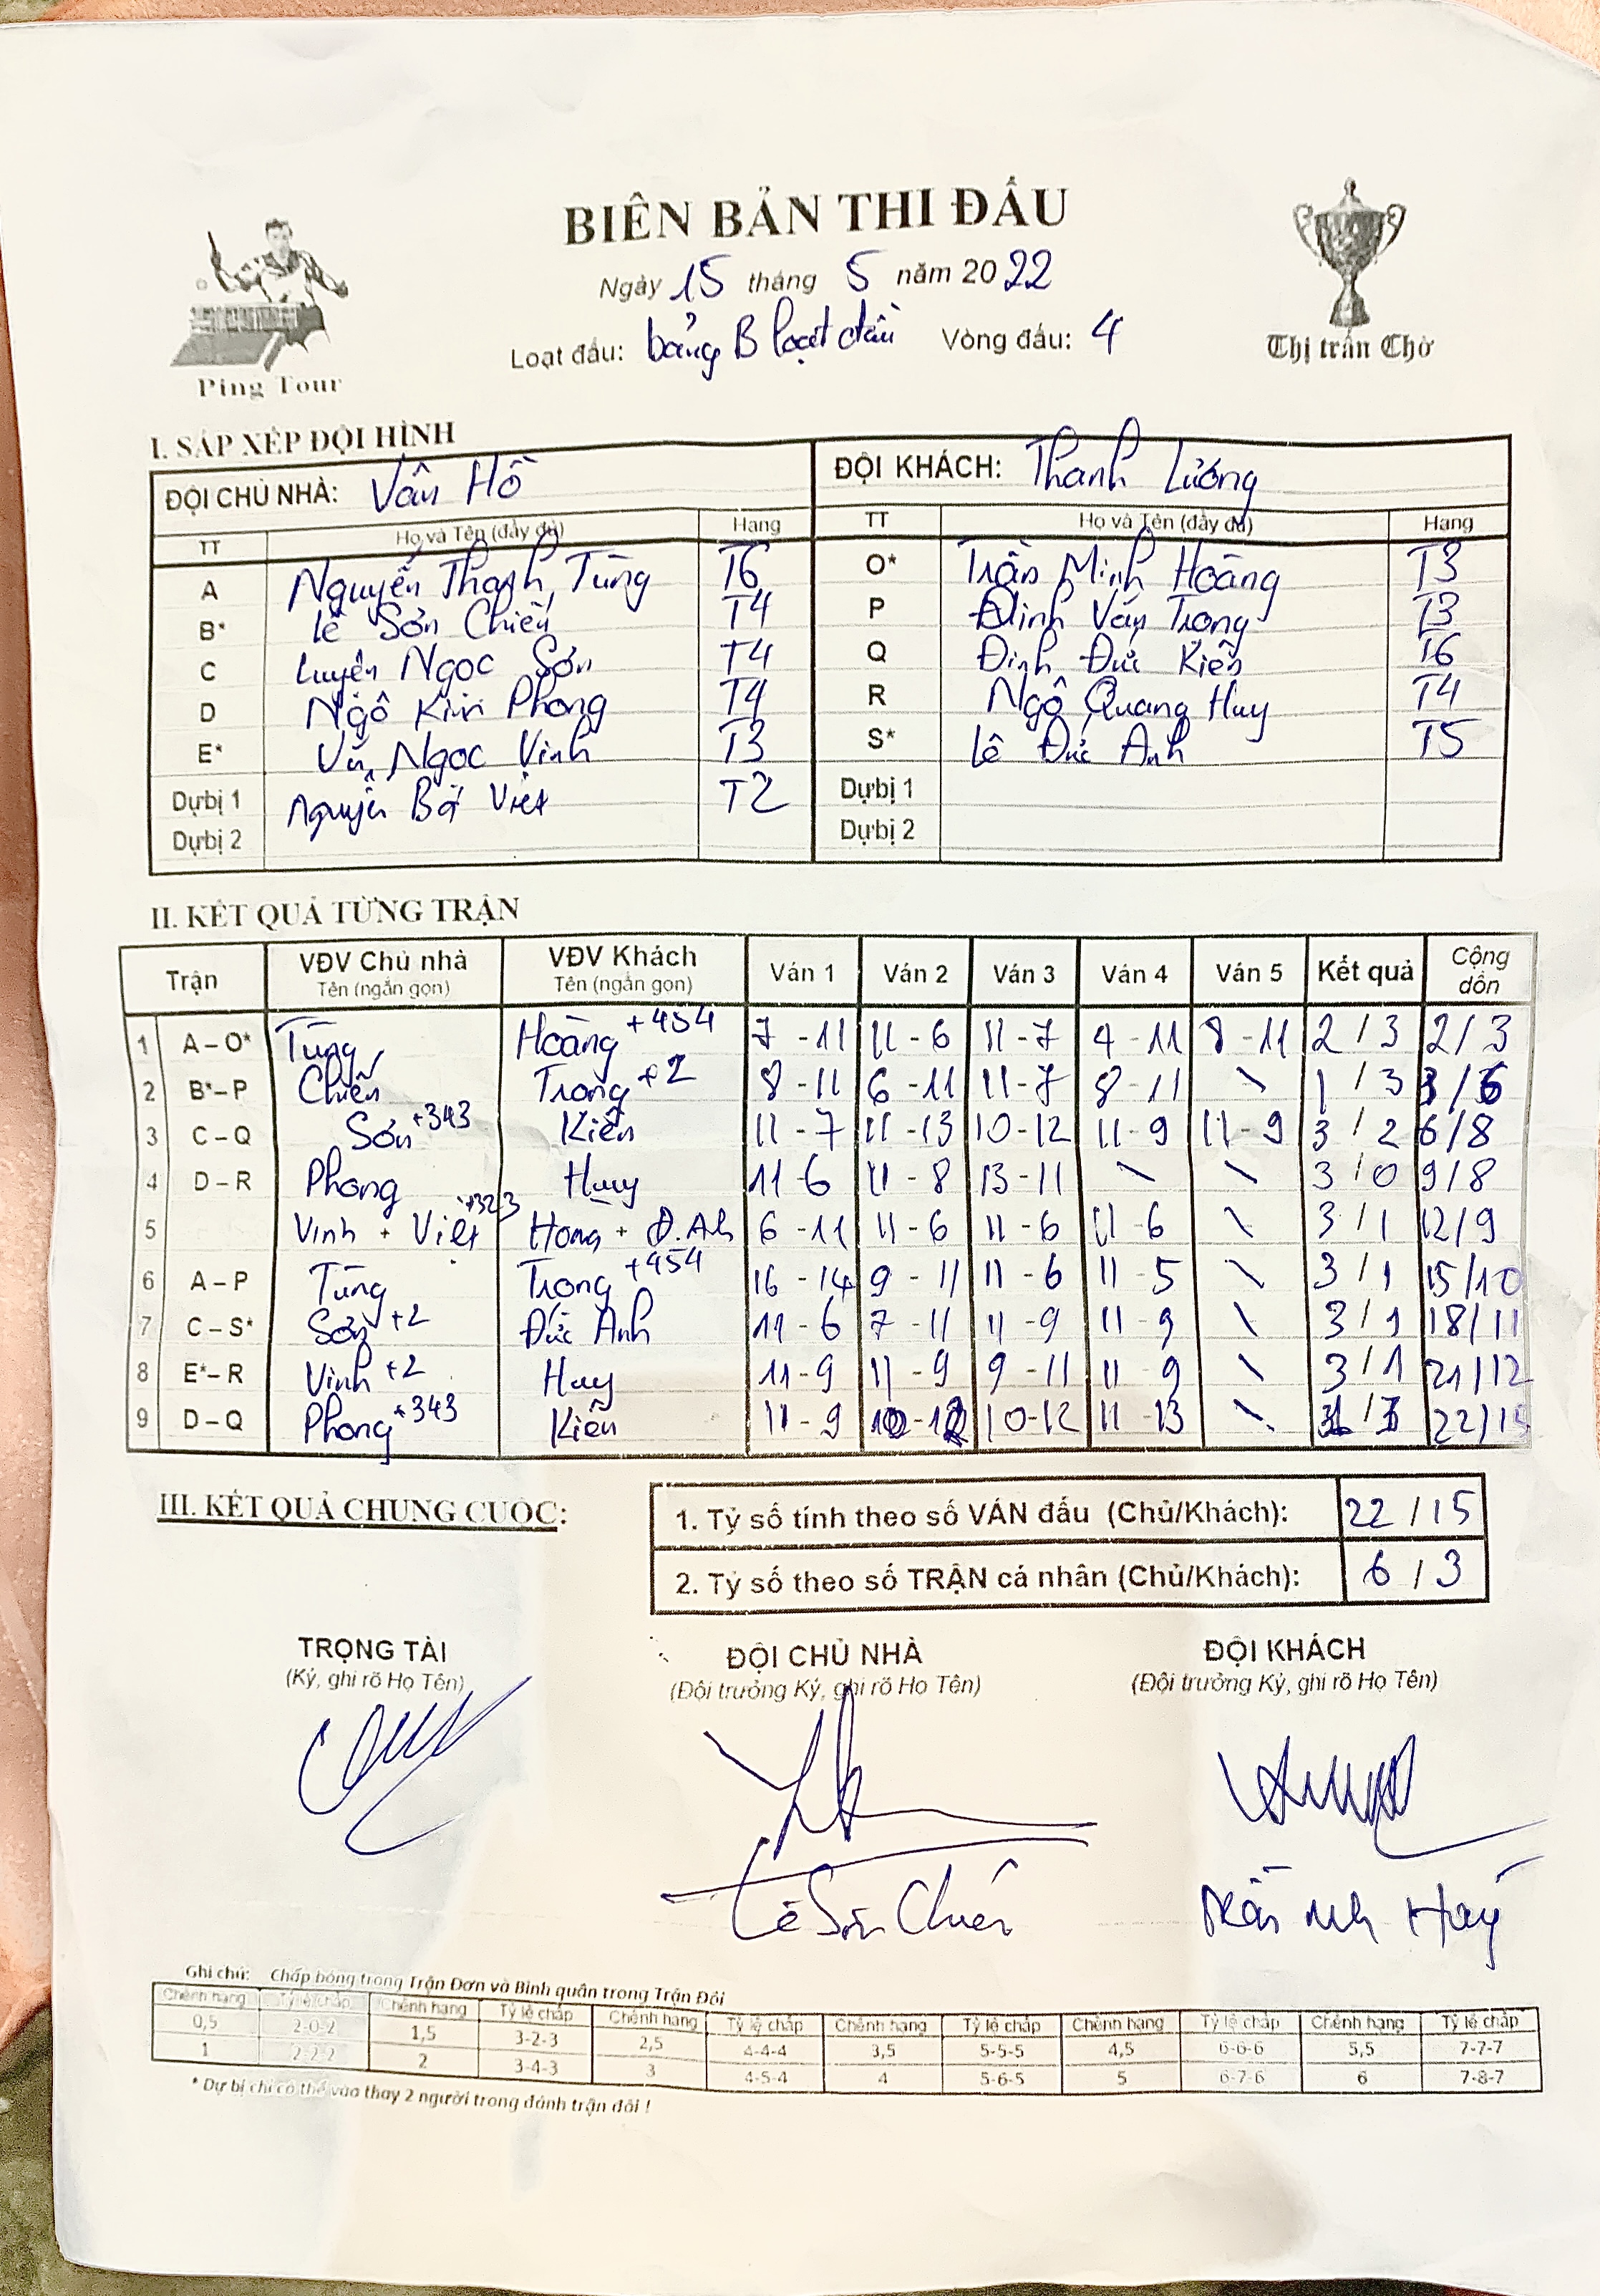 BIÊN BẢN THI ĐẤU
Ngày 15 tháng 5 năm 2022
Loạt đấu: bảng B loạt đấu Vòng đấu: 4
Ping Tour
Thị trấn Chờ
I. SẮP XẾP ĐỘI HÌNH
ĐỘI CHỦ NHÀ: Vân Hồ ĐỘI KHÁCH: Thanh Lương
TT Họ và Tên (đầy đủ) Hạng TT Họ và Tên (đầy đủ) Hạng
A Nguyễn Thanh Tùng T6 O* Trần Minh Hoàng T3
B* Lê Sơn Chiến T4 P Đinh Văn Trọng T3
C Luyện Ngọc Sơn T4 Q Đinh Đức Kiên T6
D Ngô Kim Phong T4 R Ngô Quang Huy T4
E* Vũ Ngọc Vinh T3 S* Lê Đức Anh T5
Dự bị 1 Nguyễn Bá Việt T2 Dự bị 1
Dự bị 2 Dự bị 2
II. KẾT QUẢ TỪNG TRẬN
Trận VĐV Chủ nhà Tên (ngắn gọn) VĐV Khách Tên (ngắn gọn) Ván 1 Ván 2 Ván 3 Ván 4 Ván 5 Kết quả Cộng dồn
1 A – O* Tùng Hoàng +454 7 - 11 11 - 6 11 - 7 4 - 11 8 - 11 2 / 3 2 / 3
2 B* – P Chiến Trọng +2 8 - 11 6 - 11 11 - 7 8 - 11 \ 1 / 3 3 / 6
3 C – Q Sơn +343 Kiên 11 - 7 11 - 13 10 - 12 11 - 9 11 - 9 3 / 2 6 / 8
4 D – R Phong Huy 11 - 6 11 - 8 13 - 11 \ \ 3 / 0 9 / 8
5 Vinh + Việt +323 Hoàng + Đ.Anh 6 - 11 11 - 6 11 - 6 11 - 6 \ 3 / 1 12 / 9
6 A – P Tùng Trọng +454 16 - 14 9 - 11 11 - 6 11 - 5 \ 3 / 1 15 / 10
7 C – S* Sơn +2 Đức Anh 11 - 6 7 - 11 11 - 9 11 - 9 \ 3 / 1 18 / 11
8 E* – R Vinh +2 Huy 11 - 9 11 - 9 9 - 11 11 - 9 \ 3 / 1 21 / 12
9 D – Q Phong +343 Kiên 11 - 9 10 - 12 10 - 12 11 - 13 \ 1 / 3 22 / 15
III. KẾT QUẢ CHUNG CUỘC:
1. Tỷ số tính theo số VÁN đấu (Chủ/Khách): 22 / 15
2. Tỷ số theo số TRẬN cá nhân (Chủ/Khách): 6 / 3
TRỌNG TÀI ĐỘI CHỦ NHÀ ĐỘI KHÁCH
(Ký, ghi rõ Họ Tên) (Đội trưởng Ký, ghi rõ Họ Tên) (Đội trưởng Ký, ghi rõ Họ Tên)
Lê Sơn Chiến Huy
Ghi chú: Chấp bóng trong Trận Đơn và Bình quân trong Trận Đôi
Chênh hạng Tỷ lệ chấp Chênh hạng Tỷ lệ chấp Chênh hạng Tỷ lệ chấp Chênh hạng Tỷ lệ chấp Chênh hạng Tỷ lệ chấp Chênh hạng Tỷ lệ chấp
0,5 2-0-2 1,5 3-2-3 2,5 4-4-4 3,5 5-5-5 4,5 6-6-6 5,5 7-7-7
1 2-2-2 2 3-4-3 3 4-5-4 4 5-6-5 5 6-7-6 6 7-8-7
* Dự bị chỉ có thể vào thay 2 người trong đánh trận đôi !